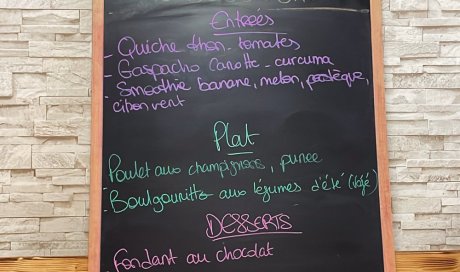 Entrées
- Quiche thon - tomates
- Gaspacho Carotte - curcuma
- Smoothie banane, melon, pastèque,
citron vert
Plat
- Poulet aux champignons, purée
- aux légumes d'été (végé)
DESSERTS
- Fondant au chocolat